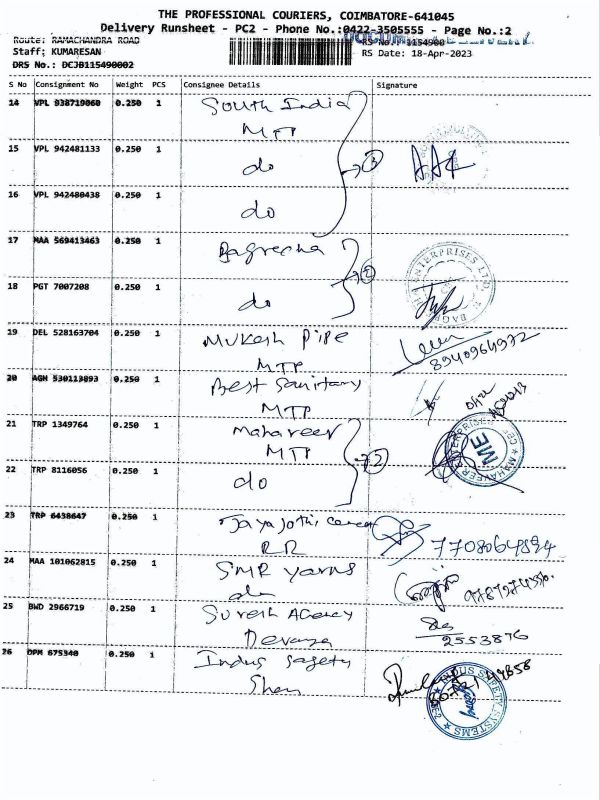 THE PROFESSIONAL COURIERS, COIMBATORE-641045
Delivery Runsheet - PC2 - Phone No.:0422-3505555 - Page No.:2
Route: RAMACHANDRA ROAD
RS No.: 1154900
Staff: KUMARESAN
RS Date: 18-Apr-2023
DRS No.: DCJB115490002
S No Consignment No Weight PCS Consignee Details Signature
14 VPL 938719060 0.250 1 South India
MTP
15 VPL 942481133 0.250 1 do 3
16 VPL 942480438 0.250 1 do
17 MAA 569413463 0.250 1 Bagreecha
18 PGT 7007208 0.250 1 do 2
ENTERPRISES LTD.
19 DEL 528163704 0.250 1 Mukesh Pipe
MTP 8940964972
20 AGH 530113893 0.250 1 Best Sanitary
MTP
21 TRP 1349764 0.250 1 Mahaveer
MTP 2
ME
MAHAVEER
22 TRP 8116056 0.250 1 do
23 TRP 6438647 0.250 1 Jayajothi
RR 7708064894
24 MAA 101062815 0.250 1 SMR yarns
do
25 BWD 2966719 0.250 1 Suresh Agency
2553876
26 DPM 675340 0.250 1 Indus Safety
INDUS SAFETY SYSTEMS